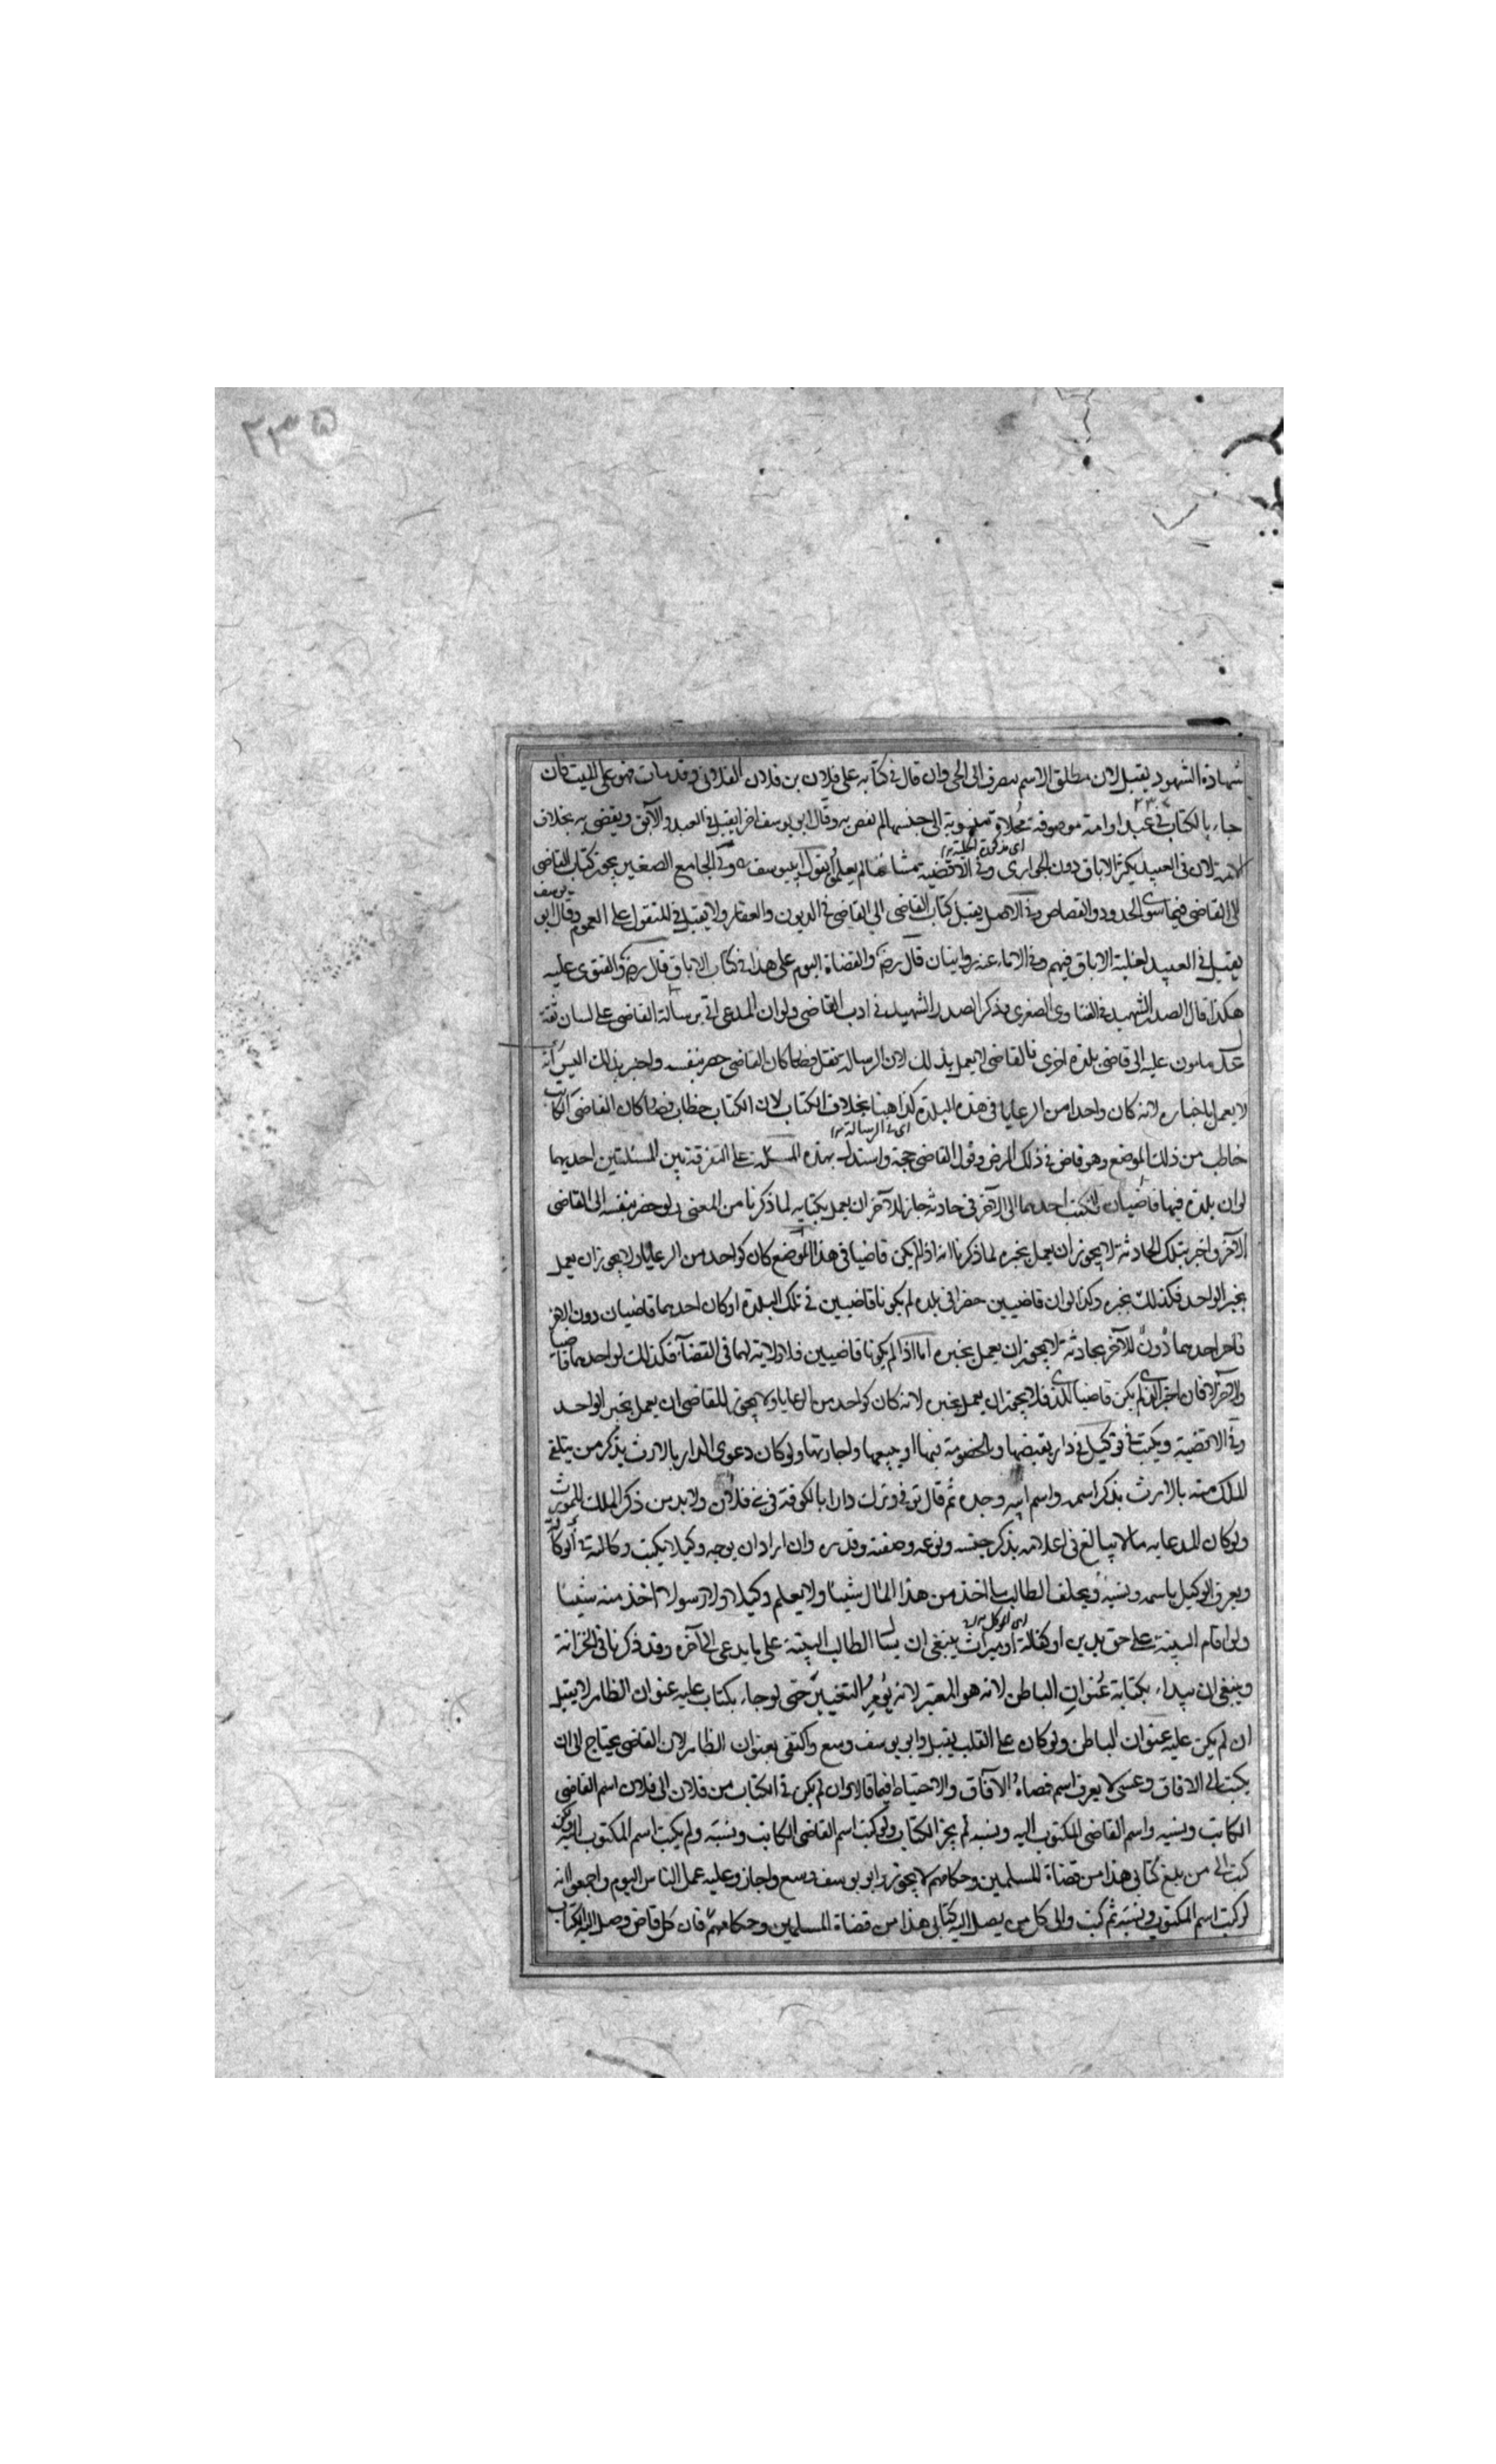 ٢٣٥
شهادة الشهود يقبل لان مطلق الاسم ينصرف الى الحي وان قال في كتابه على فلان بن فلان الفلاني وقد مات فهو على الميت فان
جاء بالكتاب في عبد او امة موصوفة محلاة منسوبة الى جنسها لم يقض به وقال ابو يوسف اخرا يقبل في العبد الآبق ويقضى به بخلاف
اى مذكورة الحلية
الامة لان في العبيد يكثر الاباق دون الجوارى وفي الاقضية مشائخنا لم يعلموا بقول ابي يوسف وفي الجامع الصغير يجوز كتاب القاضى
الى القاضى فيما سوى الحدود والقصاص وفي الاصل يقبل كتاب القاضى الى القاضى في الديون والعقار ولا يقبل في المنقول على العموم وقال ابو يوسف
يقبل في العبيد لغلبة الاباق فيهم وفي الاماء عنه روايتان قال رض والقضاة اليوم على هذا في كتاب الاباق قال رض والفتوى عليه
هكذا قال الصدر الشهيد في الفتاوى الصغرى وذكر الصدر الشهيد في ادب القاضى ولو ان المدعى اتى برسالة القاضى على لسان ثقة
عدل مامون عليه الى قاضى بلدة اخرى فالقاضى لا يعمل بذلك لان الرسالة تنقل فصار كان القاضى حضر بنفسه واخبر بذلك اليس انه
لا يعمل باخباره لانه كان واحدا من الرعايا في هذه البلدة كذا هنا بخلاف الكتاب لان الكتاب خطاب فصار كان القاضى الكاتب
اى في الرسالة
خاطب من ذلك الموضع وهو قاض في ذلك الموضع وقول القاضى حجة واستدل بهذه المسئلة على التفرقة بين المسئلتين احديهما
لو ان بلدة فيها قاضيان كتب احدهما الى الآخر في حادثة جاز للآخر ان يعمل بكتابه لما ذكرنا من المعنى ولو حضر بنفسه الى القاضى
الآخر واخبر بتلك الحادثة لا يجوز ان يعمل بخبره لما ذكرنا انه اذا لم يكن قاضيا في هذا الموضع كان كواحد من الرعايا ولا يجوز ان يعمل
بخبر الواحد فكذلك بخبره وكذا لو ان قاضيين حضرا في بلدة لم يكونا قاضيين في تلك البلدة او كان احدهما قاضيان دون الآخر
فاخبر احدهما دون للآخر بحادثة لا يجوز ان يعمل بخبره اما اذا لم يكونا قاضيين فلا ولاية لهما في القضاء فكذلك لو احدهما قاضيا
والآخر لا فان اخبر الذى لم يكن قاضيا للذى فلا يجوز ان يعمل بخبره لانه كان كواحد من الرعايا ولا يجوز للقاضى ان يعمل بخبر الواحد
وفي الاقضية ويكتب في توكيل في دار بقبضها وبالخصومة فيها او ببيعها واجارتها ولو كان دعوى الدار بالارث يذكر من يتلقى
الملك منه بالارث بذكر اسمه واسم ابيه وجده ثم قال توفي وترك دارا بالكوفة في بنى فلان ولا بد من ذكر الملك للمورث
ولو كان المدعا به مالا يبالغ في اعلامه بذكر جنسه ونوعه وصفته وقدره وان اراد ان يوجه وكيلا يكتب وكالته في الوكالة
ويعرف الوكيل باسمه ونسبه ويحلف الطالب ما اخذ من هذا المال شيئا ولا يعلم وكيلا ولا رسولا اخذ منه شيئا
اى الموكل
ولو اقام البينة على حق بدين او كفالة او ميراث ينبغى ان يسأل الطالب البينة على ما يدعى الى آخره وقد ذكرنا في الخزانة
وينبغى ان يبداء بكتابة عنوان الباطن لانه هو المعتبر لانه يؤمن التغيير حتى لو جاء بكتاب عليه عنوان الظاهر لا يقبل
ان لم يكن عليه عنوان الباطن ولو كان على القلب يقبل وابو يوسف وسع واكتفى بعنوان الظاهر لان القاضى يحتاج الى ان
يكتب الى الآفاق وعسى لا يعرف اسم قضاة الآفاق والاحتياط فيما قالا وان لم يكن في الكتاب من فلان الى فلان اسم القاضى
الكاتب ونسبه واسم القاضى المكتوب اليه ونسبه لم يجز الكتاب ولو كتب اسم القاضى الكاتب ونسبه ولم يكتب اسم المكتوب اليه ولكن
كتب الى من بلغ كتابى هذا من قضاة المسلمين وحكامهم لا يجوز وابو يوسف وسع واجاز وعليه عمل الناس اليوم واجمعوا انه
لو كتب اسم المكتوب ونسبه ثم كتب والى كل من يصل اليه كتابى هذا من قضاة المسلمين وحكامهم فان كل قاض وصل اليه الكتاب